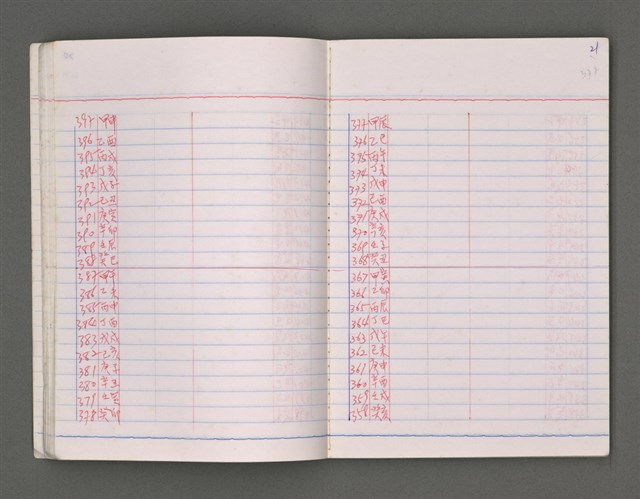 397 甲申
396 乙酉
395 丙戌
394 丁亥
393 戊子
392 己丑
391 庚寅
390 辛卯
389 壬辰
388 癸巳
387 甲午
386 乙未
385 丙申
384 丁酉
383 戊戌
382 己亥
381 庚子
380 辛丑
379 壬寅
378 癸卯
21
377
377 甲辰
376 乙巳
375 丙午
374 丁未
373 戊申
372 己酉
371 庚戌
370 辛亥
369 壬子
368 癸丑
367 甲寅
366 乙卯
365 丙辰
364 丁巳
363 戊午
362 己未
361 庚申
360 辛酉
359 壬戌
358 癸亥